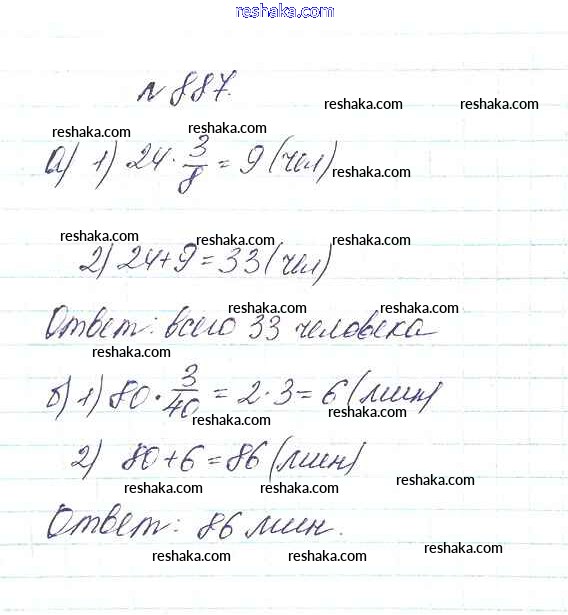 www.reshaka.com
№ 887.
reshaka.com
reshaka.com reshaka.com
а) 1) 24 · 3/8 = 9 (чел)
reshaka.com
reshaka.com reshaka.com reshaka.com
2) 24+9 = 33 (чел)
reshaka.com reshaka.com
Ответ: всего 33 человека
reshaka.com
б) 1) 80 · 3/40 = 2 · 3 = 6 (мин)
reshaka.com reshaka.com
2) 80+6 = 86 (мин)
reshaka.com reshaka.com reshaka.com
Ответ: 86 мин.
reshaka.com reshaka.com reshaka.com